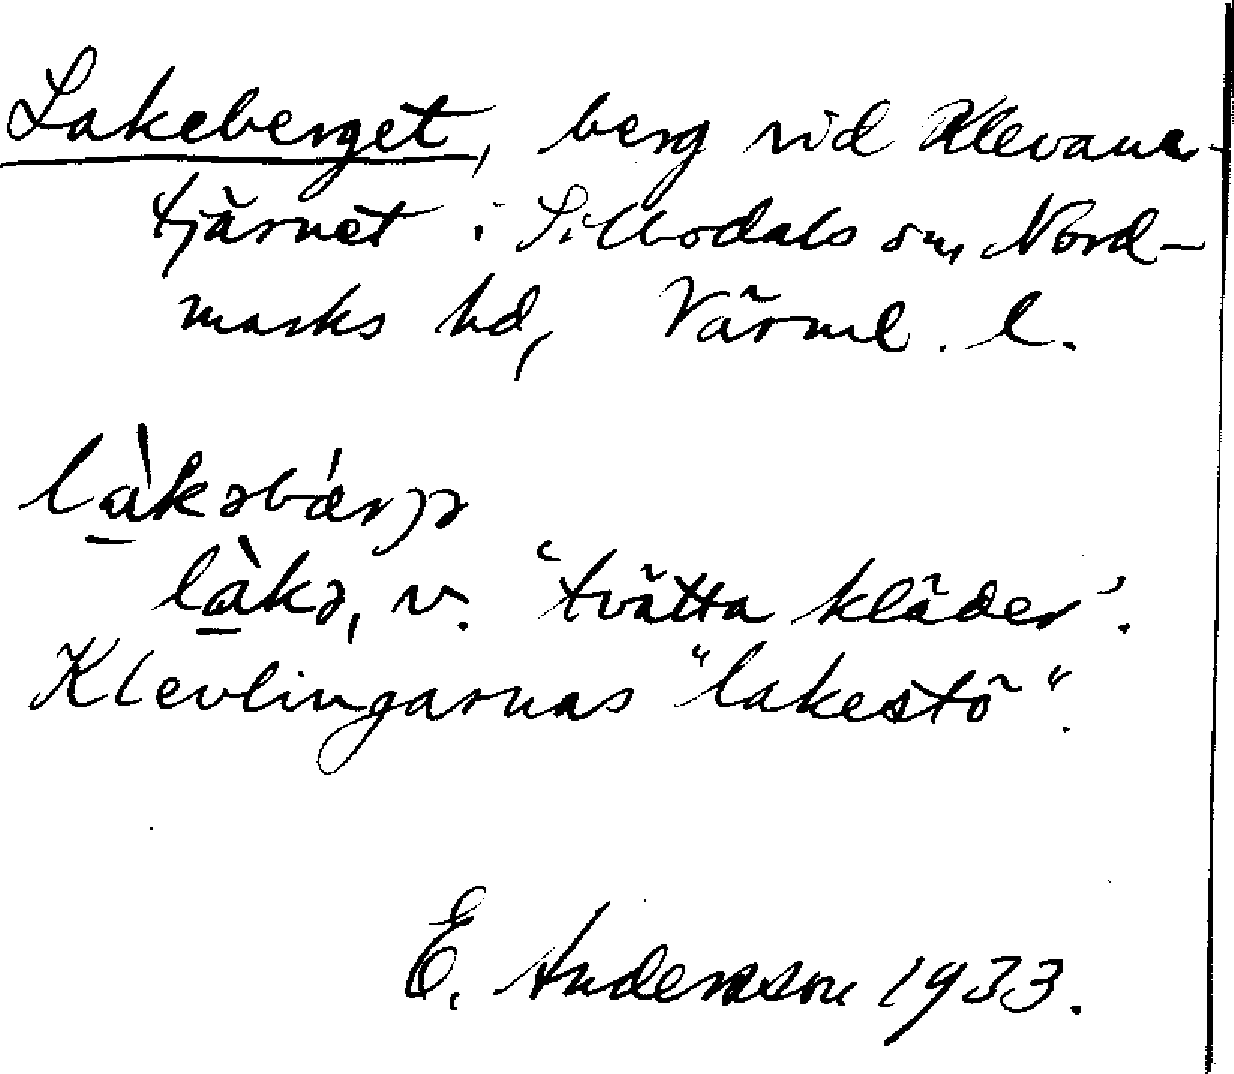 Lakeberget, berg vid Klevane-
tjärnet i Silbodals sn, Nord-
marks hd, Värml. l.
là̱kəbǽrjə
là̱kə, v. 'tvätta kläder'.
Klevlingarnas "lakestö".
E. Andersson 1933.